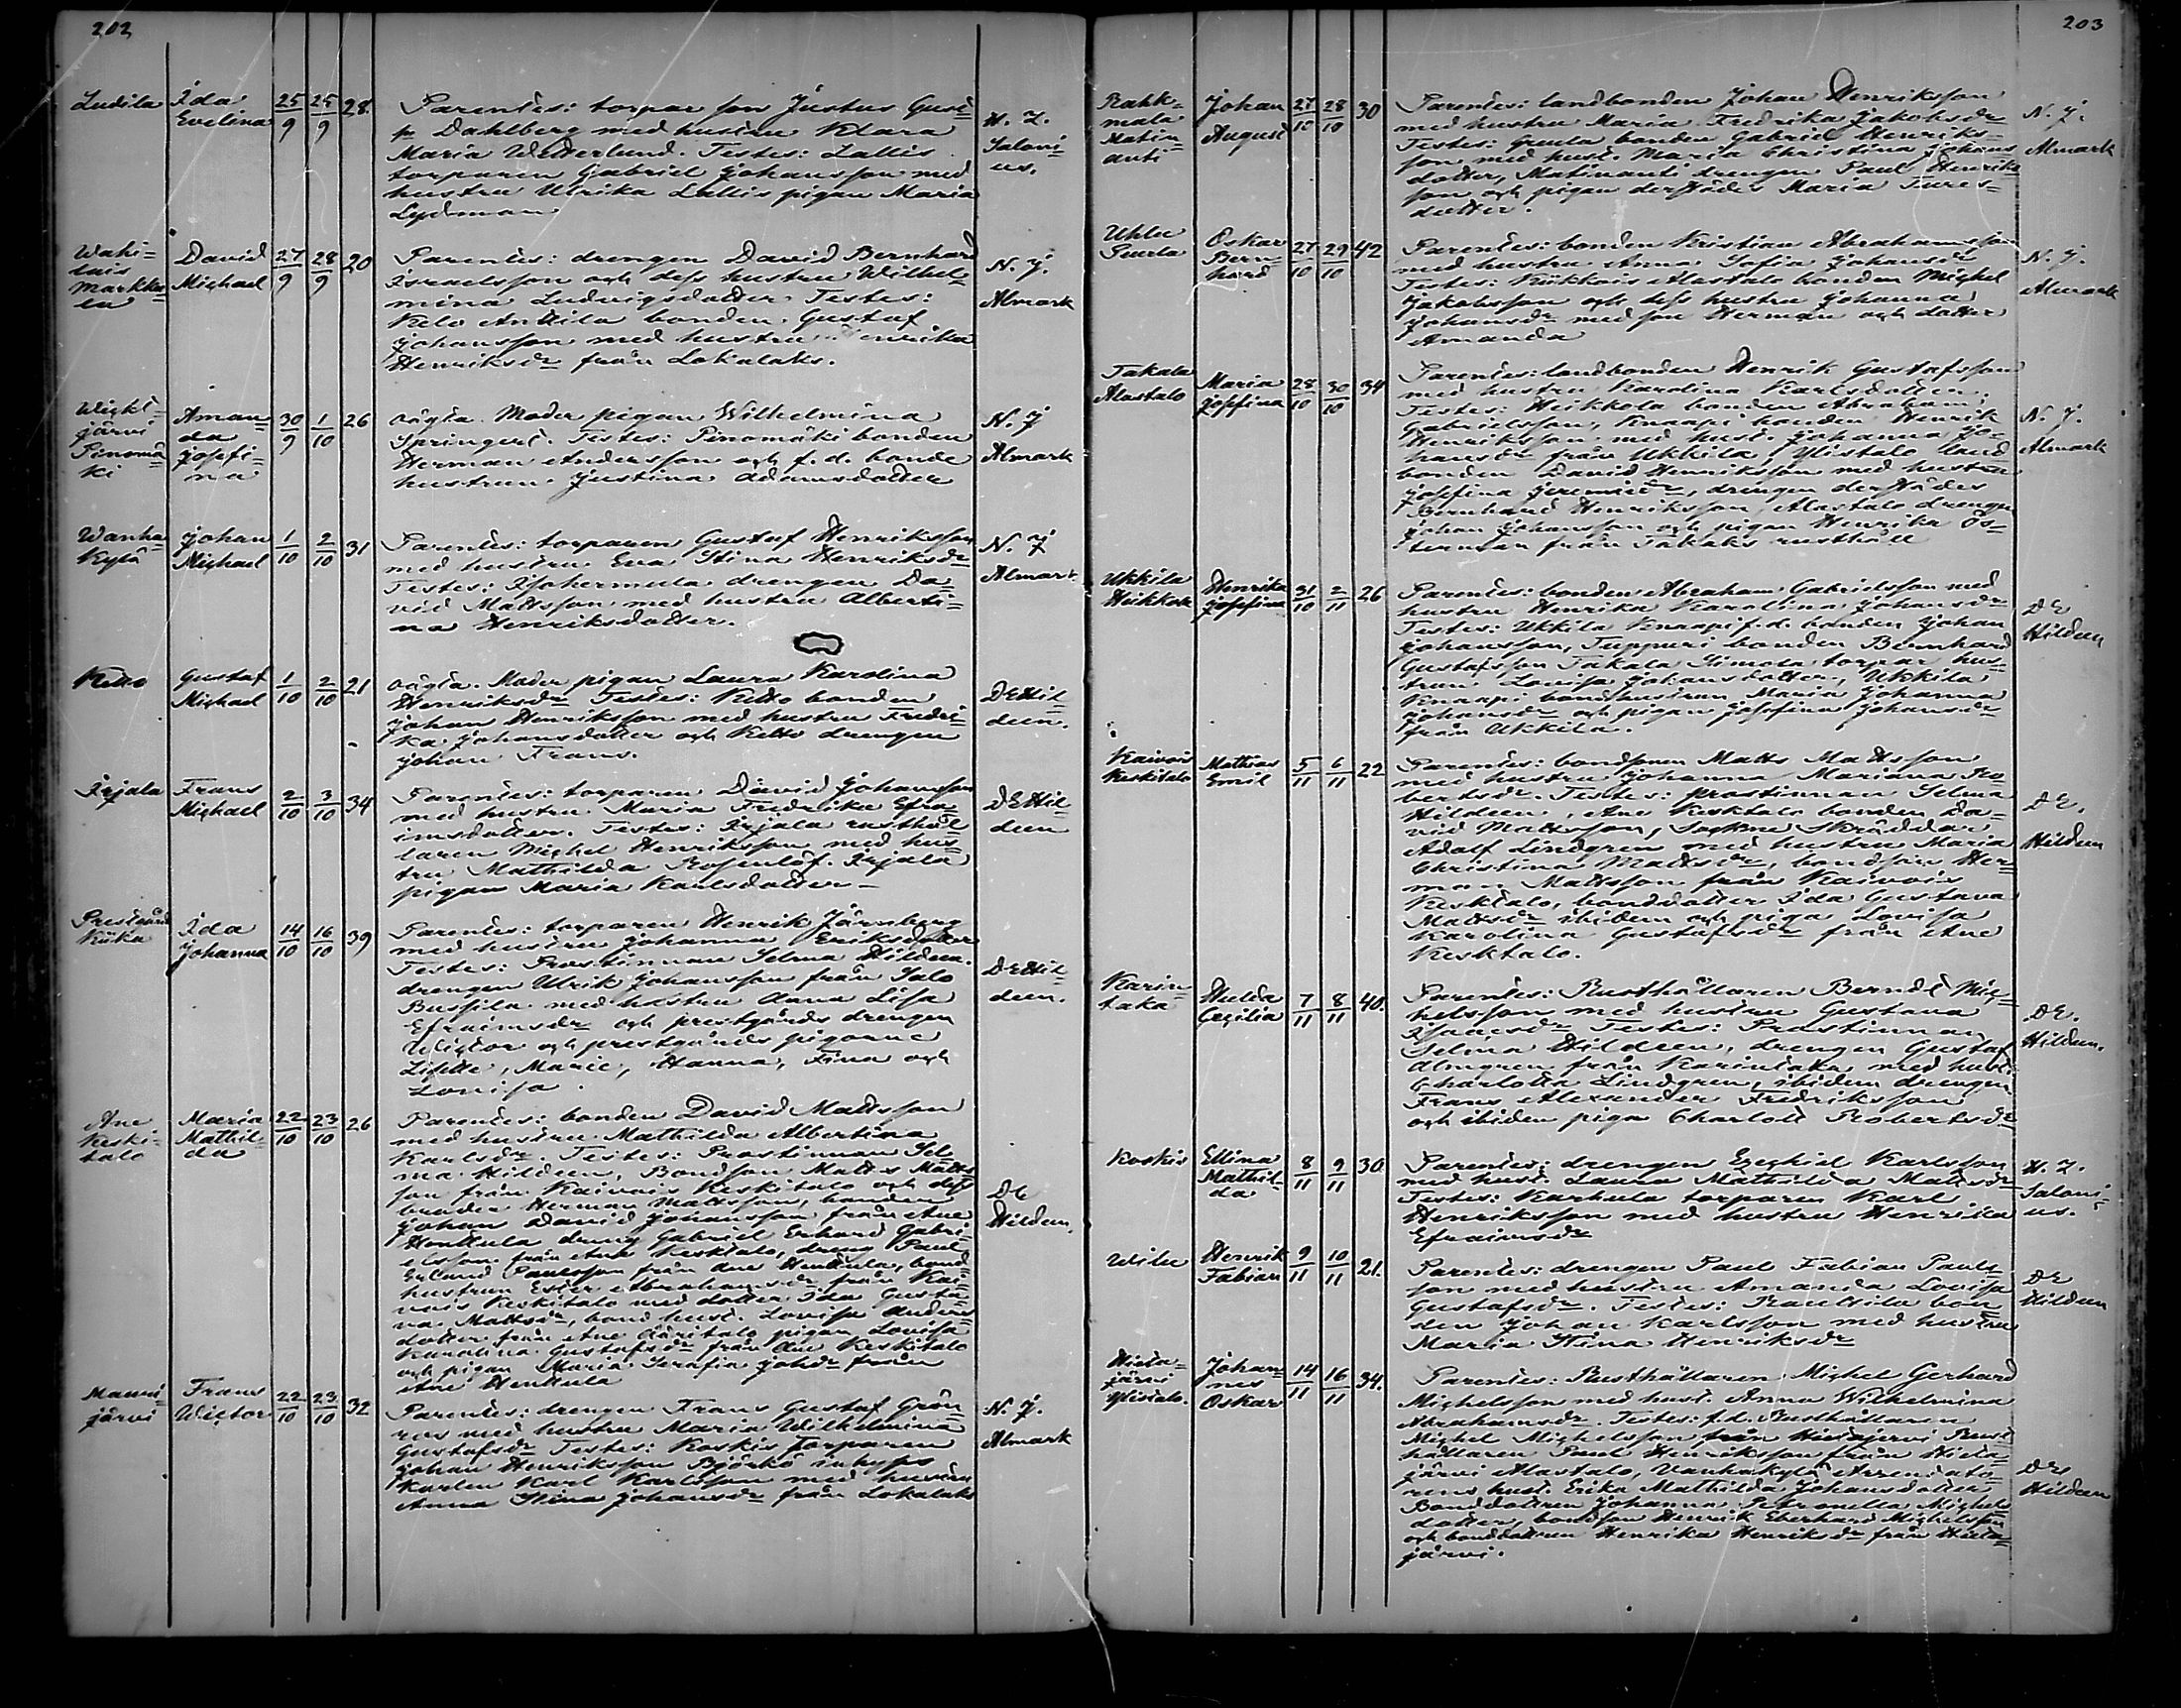 202
Ludila Ida Evelina 25/9 25/9 28.
Parentes: torpare son Justus Gust:
p. Dahlberg med hustru Klara
Maria Wetterlund. Testes: Lallis
torparen Gabriel Johansson med
hustru Ulrika Lallis pigan Maria
Lydman
H. Z. Saloni=us.
Wahi=lais Markku=la David Michael 27/9 28/9 20
Parentes: drengen David Bernhard
Israelsson och dess hustru Wilhel=
mina Ludvigsdotter. Testes:
Kelo Anttila bonden Gustaf
Johansson med hustru Henrika
Henriksdr från Lokalaks.
N. J. Almark
Wicht=järvi Pinomä=ki Aman=da Josefi=na 30/9 1/10 26
oägta. Moder pigan Wilhelmina
Springert. Testes: Pinomäki bonden
Herman Andersson och f. d. bonde
hustrun Justina Adamsdotter
N. J. Almark
Wanha Kylä Johan Michael 1/10 2/10 31
Parentes: torparen Gustaf Henriksson
med hustru Eva Stina Henriksdr
Testes: drengen Da=
vid Mattsson med hustru Alberti=
na Henriksdotter.
N. J. Almark
Ketto Gustaf Michael 1/10 2/10 21
oägta. Moder pigan Laura Karolina
Henriksdr Testes: Ketto bonden
Johan Henriksson med hustru Fredri=
ka Johansdotter och Ketto drengen
Johan Frans.
D E Hil=deen.
Irjala Frans Michael 2/10 3/10 34
Parentes: torparen David Johansson
med hustru Maria Fredrika Efra=
imsdotter. Testes: Irjala rusthål=
laren Michel Henriksson med hus=
tru Mathilda Rosenlöf. Irjala
pigan Maria Karlsdotter
D E Hil=deen
Prestgård Kiika Ida Johanna 14/10 16/10 39
Parentes: torparen Henrik Järnberg
med hustru Johanna Eriksdotter
Testes: Prostinnan Selma Hildeen.
drengen Ulrik Johansson från Salo
Bussila med hustru Anna Lisa
Efraimsdr och prestgårds drengen
Wictor och prestgårds pigorne
Lisette, Marie, Hanna, Fina och
Lovisa.
D E Hil=deen.
Ane Keski=talo Maria Mathil=da 22/10 23/10 26
Parentes: bonden David Mattsson
med hustru Mathilda Albertina
Karlsdr. Testes: Prostinnan Sel=
ma Hildeen, Bondson Matts Matts
son från Kaivois Keskitalo och dess
broder Herman Mattsson, bonden
Johan David Johansson från Ane
Honttula dreng Gabriel Erhard Gabri=
elsson från Ane Keskitalo, dreng Paul
Erland Paulsson från Ane Henttula, bond=
hustrun Ester Abrahamsdr från Kai=
vois Keskitalo med dotter Ida Gusta=
va Mattsdr, bond hust. Lovisa Anders
dotter från Ane Ääritalo pigan Lovisa
Karolina Gustafsdr från Ane Keskitalo
och pigan Maria Serafia Johdr från
Ane Henttula
D E Hildeen.
Mauri=järvi Frans Wictor 22/10 23/10 32
Parentes: drengen Frans Gustaf Grön=
ros med hustru Maria Wilhelmina
Gustafsdr Testes: Koskis torparen
Johan Henriksson Björkö inhyses
karlen Karl Karlsson med hustru
Anna Stina Johansdr från Lokalaks
N. J. Almark
203
Rahk=mala Matin=anti Johan August 27/10 28/10 30
Parentes: landbonden Johan Henriksson
med hustru Maria Fredrika Jakobsdr
Testes: bonden Gabriel Henriks=
son med hust. Maria Christina Johans
dotter, Matinanti drengen Paul Henriks
son och pigan derstädes Maria Tures=
dotter.
N. J. Almark
Uhlu Oskar Bern=hard 27/10 29/10 42
Parentes: bonden Kristian Abrahamsson
med hustru Anna Sofia Johansdr
Testes: Alastalo bonden Michel
Jakobsson och dess hustru Johanna
Johansdr med son Herman och dotter
Amanda
N. J. Almark
Takala Alastalo Maria Josefina 28/10 30/10 34
Parentes: landbonden Henrik Gustafsson
med hustru Karolina Karlsdotter.
Testes: Heikkola bonden Abraham
Gabrielsson, Knaapi bonden Henrik
Henriksson med hust. Johanna Jo=
hansdr från Ukkila, Ylistalo land
bonden David Henriksson med hustru
Josefina Jeremiedr, drengen derstädes
Bernhard Henriksson, Alastalo drengen
Johan Johansson och pigan Henrika Ös=
terman från Takala rusthåll
N. J. Almark
Ukkila Heikkola Henrika Josefina 31/10 2/11 26
Parentes: bonden Abraham Gabrielsson med
hustru Henrika Karolina Johansdr
Testes: Ukkila Knaapi f. d. bonden Johan
Johansson, Tuppuri bonden Bernhard
Gustafsson Takala Simola torpar hus=
trun Lovisa Johansdotter, Ukkila
Knaapi bondhustrun Maria Johanna
Johansdr och pigan Josefina Johansdr
från Ukkila.
D E Hildeen
Kaivois Keskitalo Mathias Emil 5/11 6/11 22
Parentes: bondsonen Matts Mattsson
med hustru Johanna Mariana Ro=
bertsdr. Testes: prostinnan Selma
Hildeen, Ane Keskitalo bonden Da=
vid Mattsson, Sockne Skräddar
Adolf Lindgren med hustru Maria
Christina Mattsdr, bondson Her=
man Mattsson från Kaivois
Keskitalo, bonddotter Ida Gustava
Mattsdr ibidem och piga Lovisa
Karolina Gustafsdr från Ane
Keskitalo.
D E. Hildeen
Karin=taka Hulda Cecilia 7/11 8/11 40.
Parentes: Rusthållaren Berndt Mic=
helsson med hustru Gustava
Isaacsdr Testes: Prostinnan
Selma Hildeen, drengen Gustaf
Almgren från Karintaka med hust.
Charlotta Lindgren, ibidem drengen
Frans Alexander Fredriksson
och ibidem piga Charlott Robertsdr
D E. Hildeen.
Koskis Ellina Mathil=da 8/11 9/11 30.
Parentes: drengen Ezechiel Karlsson
med hust. Laura Mathilda Mattsdr
Testes: Karhula torparen Karl
Henriksson med hustru Henrika
Efraimsdr
H. Z. Saloni=us.
Wilu Henrik Fabian 9/11 10/11 21.
Parentes: drengen Paul Fabian Pauls
son med hustru Amanda Lovisa
Gustafsdr. Testes: bon
den Johan Karlsson med hustru
Maria Stina Henriksdr
D E Hildeen
Hieta=järvi Ylistalo. Johan=nes Oskar 14/11 16/11 34.
Parentes: Rusthållaren Michel Gerhard
Michelsson med hust. Anna Wilhelmina
Abrahamsdr. Testes: f. d. Rusthållaren
Michel Michelsson från Hietajervi Rust
hållaren Paul Henriksson från Hieta=
järvi Alastalo, Vanhakylä Arrendato=
rens hust. Erika Mathilda Johansdotter
Bonddottren Johanna Petronella Michels
dotter, bondson Henrik Eberhard Michelsson
och bonddottren Henrika Henriksdr från Hieta=
järvi.
D E Hildeen